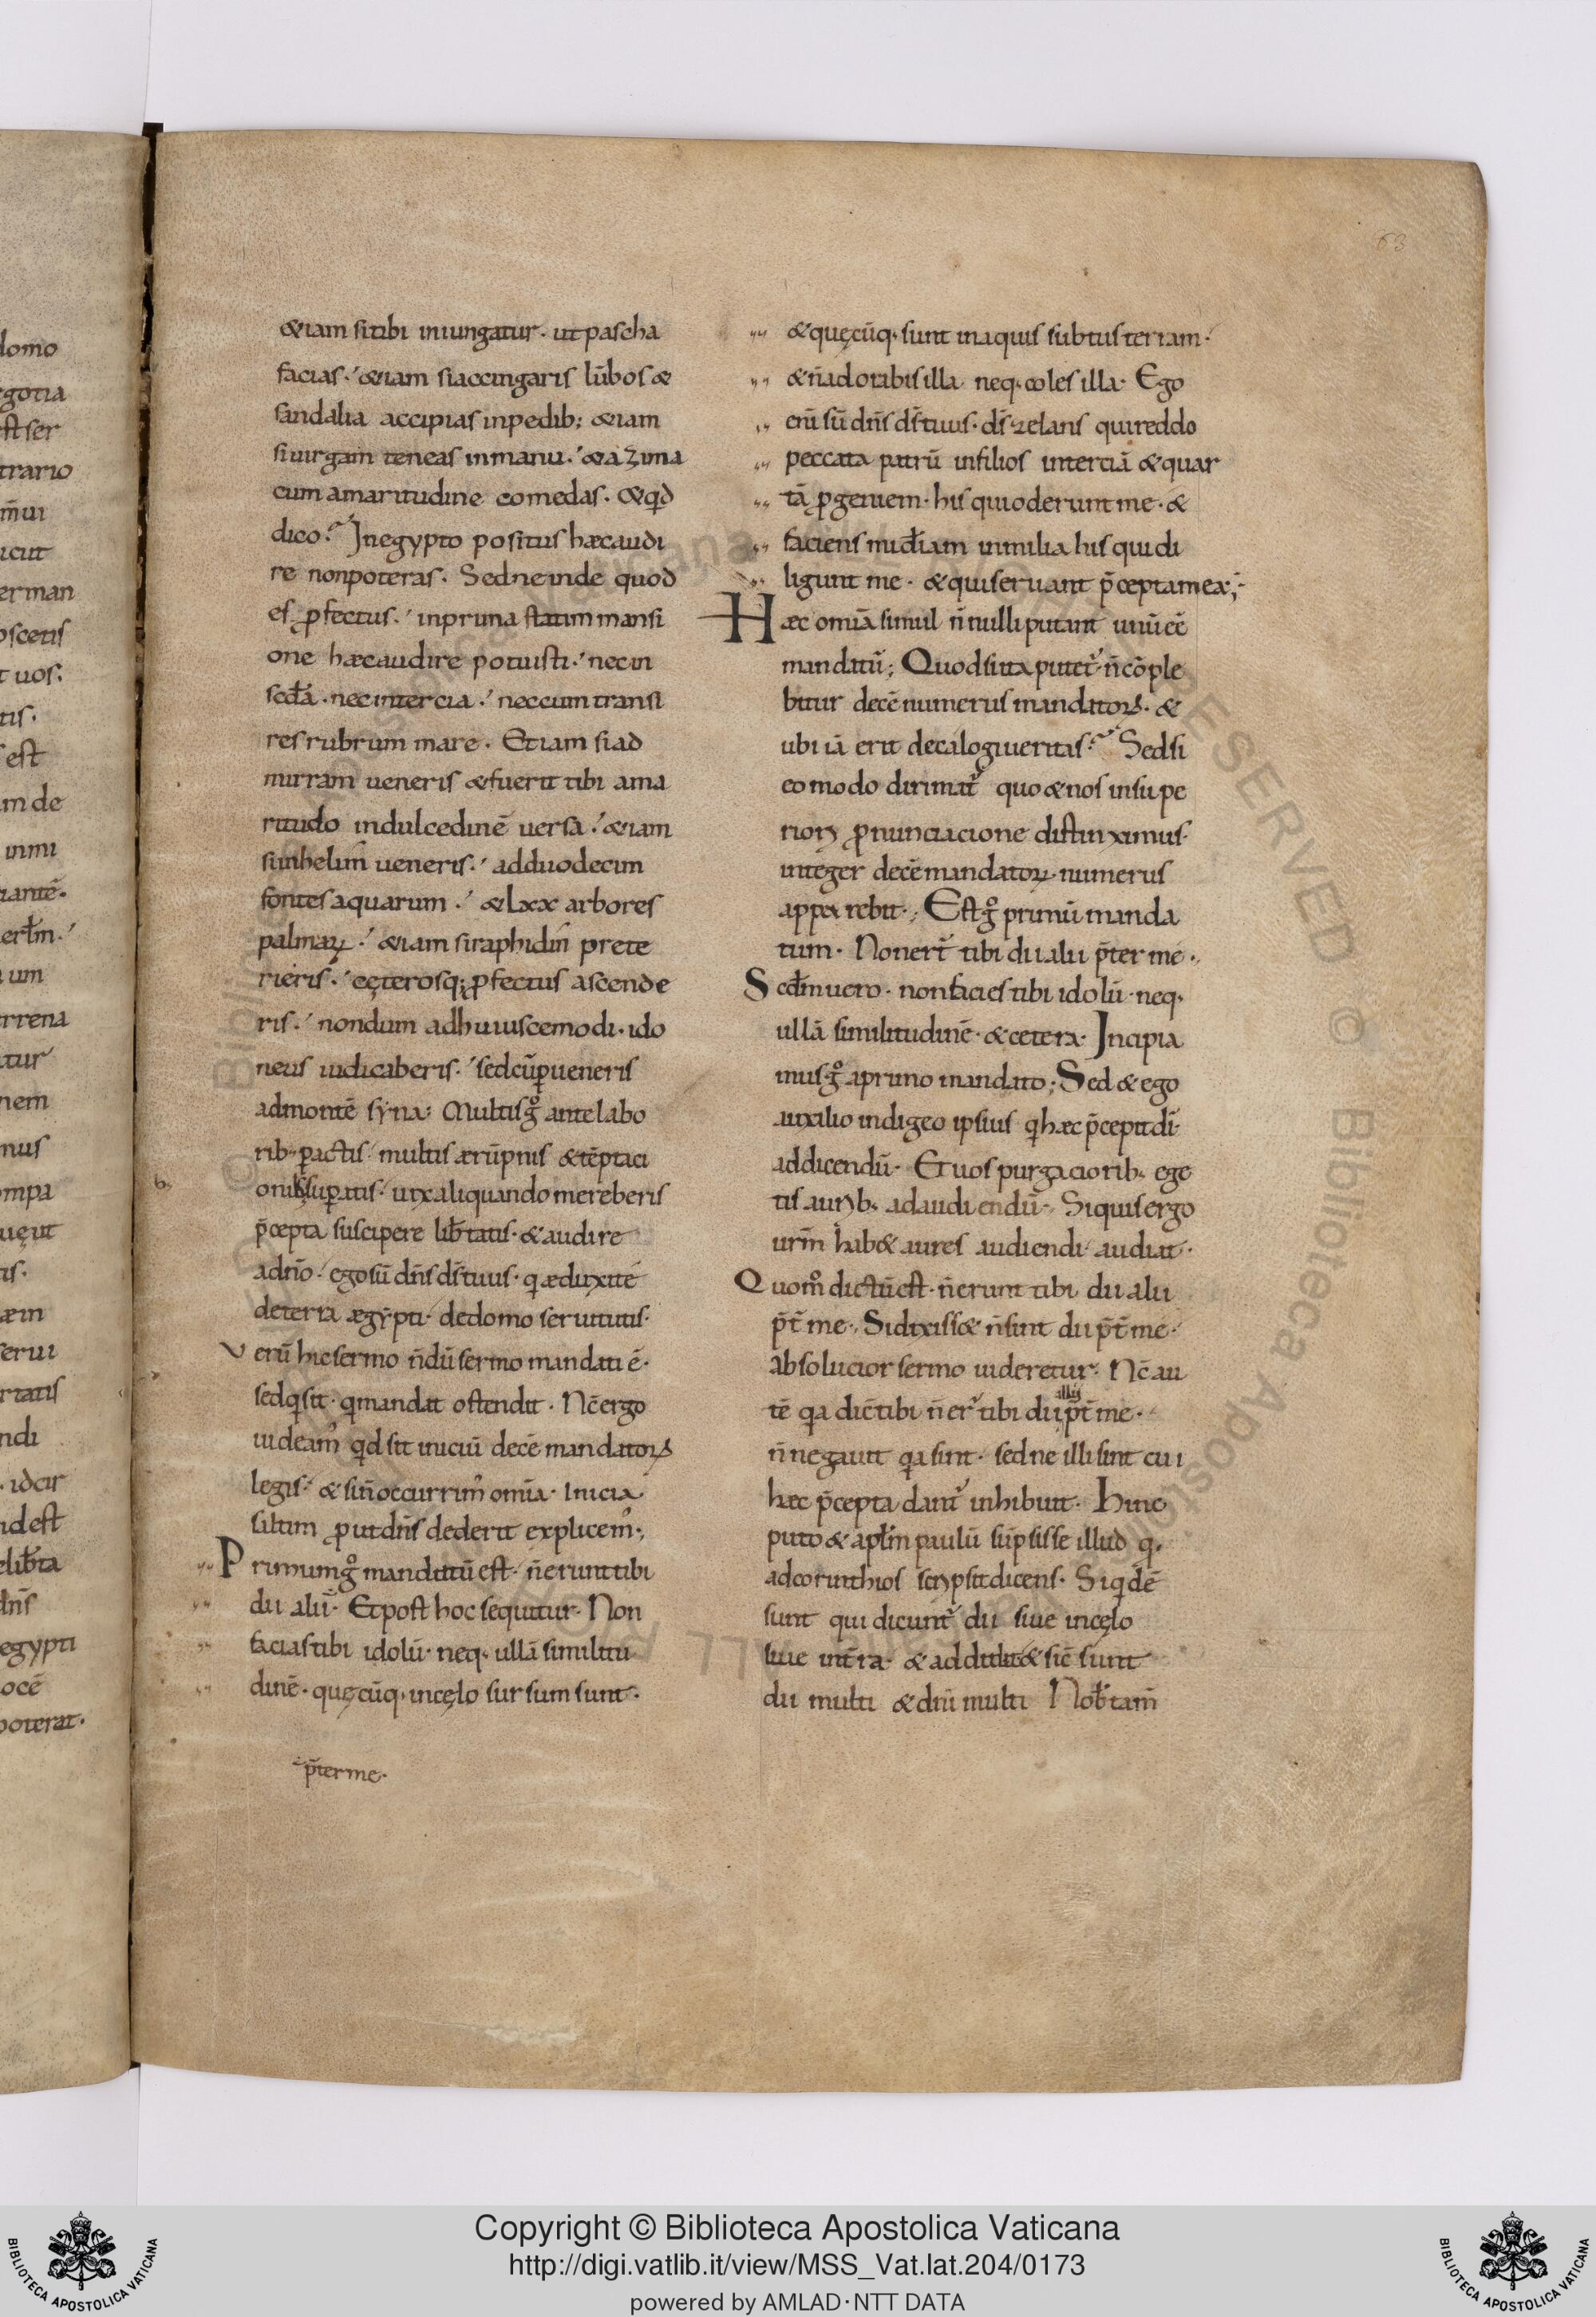 63
&iam si tibi iniungatur· ut pascha
facias·′ &iam si accingaris lūbos &
sandalia accipias in pedib; &iam
si uirgam teneas in manu·′ & azima
cum amaritudine comedas· & qd
dico? In egypto positus hæc audi
re non poteras· Sed ne inde quod
es ꝓfectus·′ in prima statim mansi
one hæc audire potuisti·′ nec in
scđa· nec in tercia·′ nec cum transi
res rubrum mare· Etiam si ad
mirram ueneris & fuerit tibi ama
ritudo in dulcedinē uersa·′ &iam
si in helim ueneris·′ ad duodecim
fontes aquarum·′ & lxx arbores
palmaꝝ·′ &iam si raphidin prete
rieris·′ cęterosq; ꝓfectus ascende
ris·′ nondum adhuiuscemodi· ido
neus iudicaberis·′ sed cū ꝑueneris
ad montē syna: Multis gͦ ante labo
rib· ꝑactis· multis ærūpnis & tēptaci
onib; suꝑatis· uix aliquando mereberis
p̄cepta suscipere lib̄tatis· & audire
a dn̄o· ego sū dn̄s ds̄ tuus· q̄ æduxi te
de terra ægypti· de domo seruitutis·
Verū hic sermo n̄dū sermo mandati ē·
sed q̄ sit· q̄ mandat ostendit· Nc̄ ergo
uideam᾽ qd sit iniciū decē mandatoꝝ
legis·′ & si n̄ occurrim᾽ omīa· Inicia
saltim ꝓut dn̄s dederit explicem᾽·,
Primum gͦ mandatū est· n̄ erunt tibi
dii alii· Et post hoc sequitur· Non
facias tibi idolū· neq· ullā similitu
dinē· quęcūq· in cęlo sursum sunt·
p̄ter me·
& quęcūq· sunt in aquis subtus terram·
& n̄ adorabis illa neq· coles illa· Ego
eni sū dn̄s ds̄ tuus· ds̄ zelans qui reddo
peccata patrū in filios in terciā & quar
tā ꝓgeniem· his qui oderunt me· &
faciens mīdiam in milia his qui di
ligunt me· & qui seruant p̄cepta mea;
Hæc omīa simul n̄nulli putant unū eē
mandatū; Quod si ita putet᾽ n̄ cōple
bitur decē numerus mandatoꝝ· &
ubi iā erit decalogi ueritas? Sed si
eo modo dirimat᾽ quo & nos in supe
riori ꝓnunciacione distinximus·
integer decē mandatoꝝ numerus
apparebit·; Est gͦ primū manda
tum· Non ert᾽ tibi dii alii p̄ter me·,
Scđm uero· non facies tibi idolū· neq·
ullā similitudinē· & cetera· Incipia
mus gͦ a primo mandato; Sed & ego
auxilio indigeo ipsius q̄ hæc p̄cepit dī
ad dicendū· Et uos purgaciorib· ege
tis aurib· ad audiendū· Si quis ergo
urm̄ hab& aures audiendi audiat·
Quom᾽ dictū est· n̄ erunt tibi dii alii
p̄t̄ me·, Si dixiss& n̄ sint dii p̄t̄ me·
absolucior sermo uideretur· Nc̄ au
tē q̄a dic̄ tibi n̄ er᾽ tibi dii alii p̄t̄ me·
n̄ negauit q̄a sint· sed ne illi sint cui
hæc p̄cepta dant᾽ inhibuit· Hinc
puto & aplm̄ paulū sūpsisse illud q·
ad corinthios scripsit dicens· Siqdē
sunt qui dicunt᾽ dii siue in cęlo
siue in tr̄a· & addidit & sic̄ sunt
dii multi & dni multi Nob tam̄
Copyright © Biblioteca Apostolica Vaticana
http://digi.vatlib.it/view/MSS_Vat.lat.204/0173
powered by AMLAD·NTT DATA